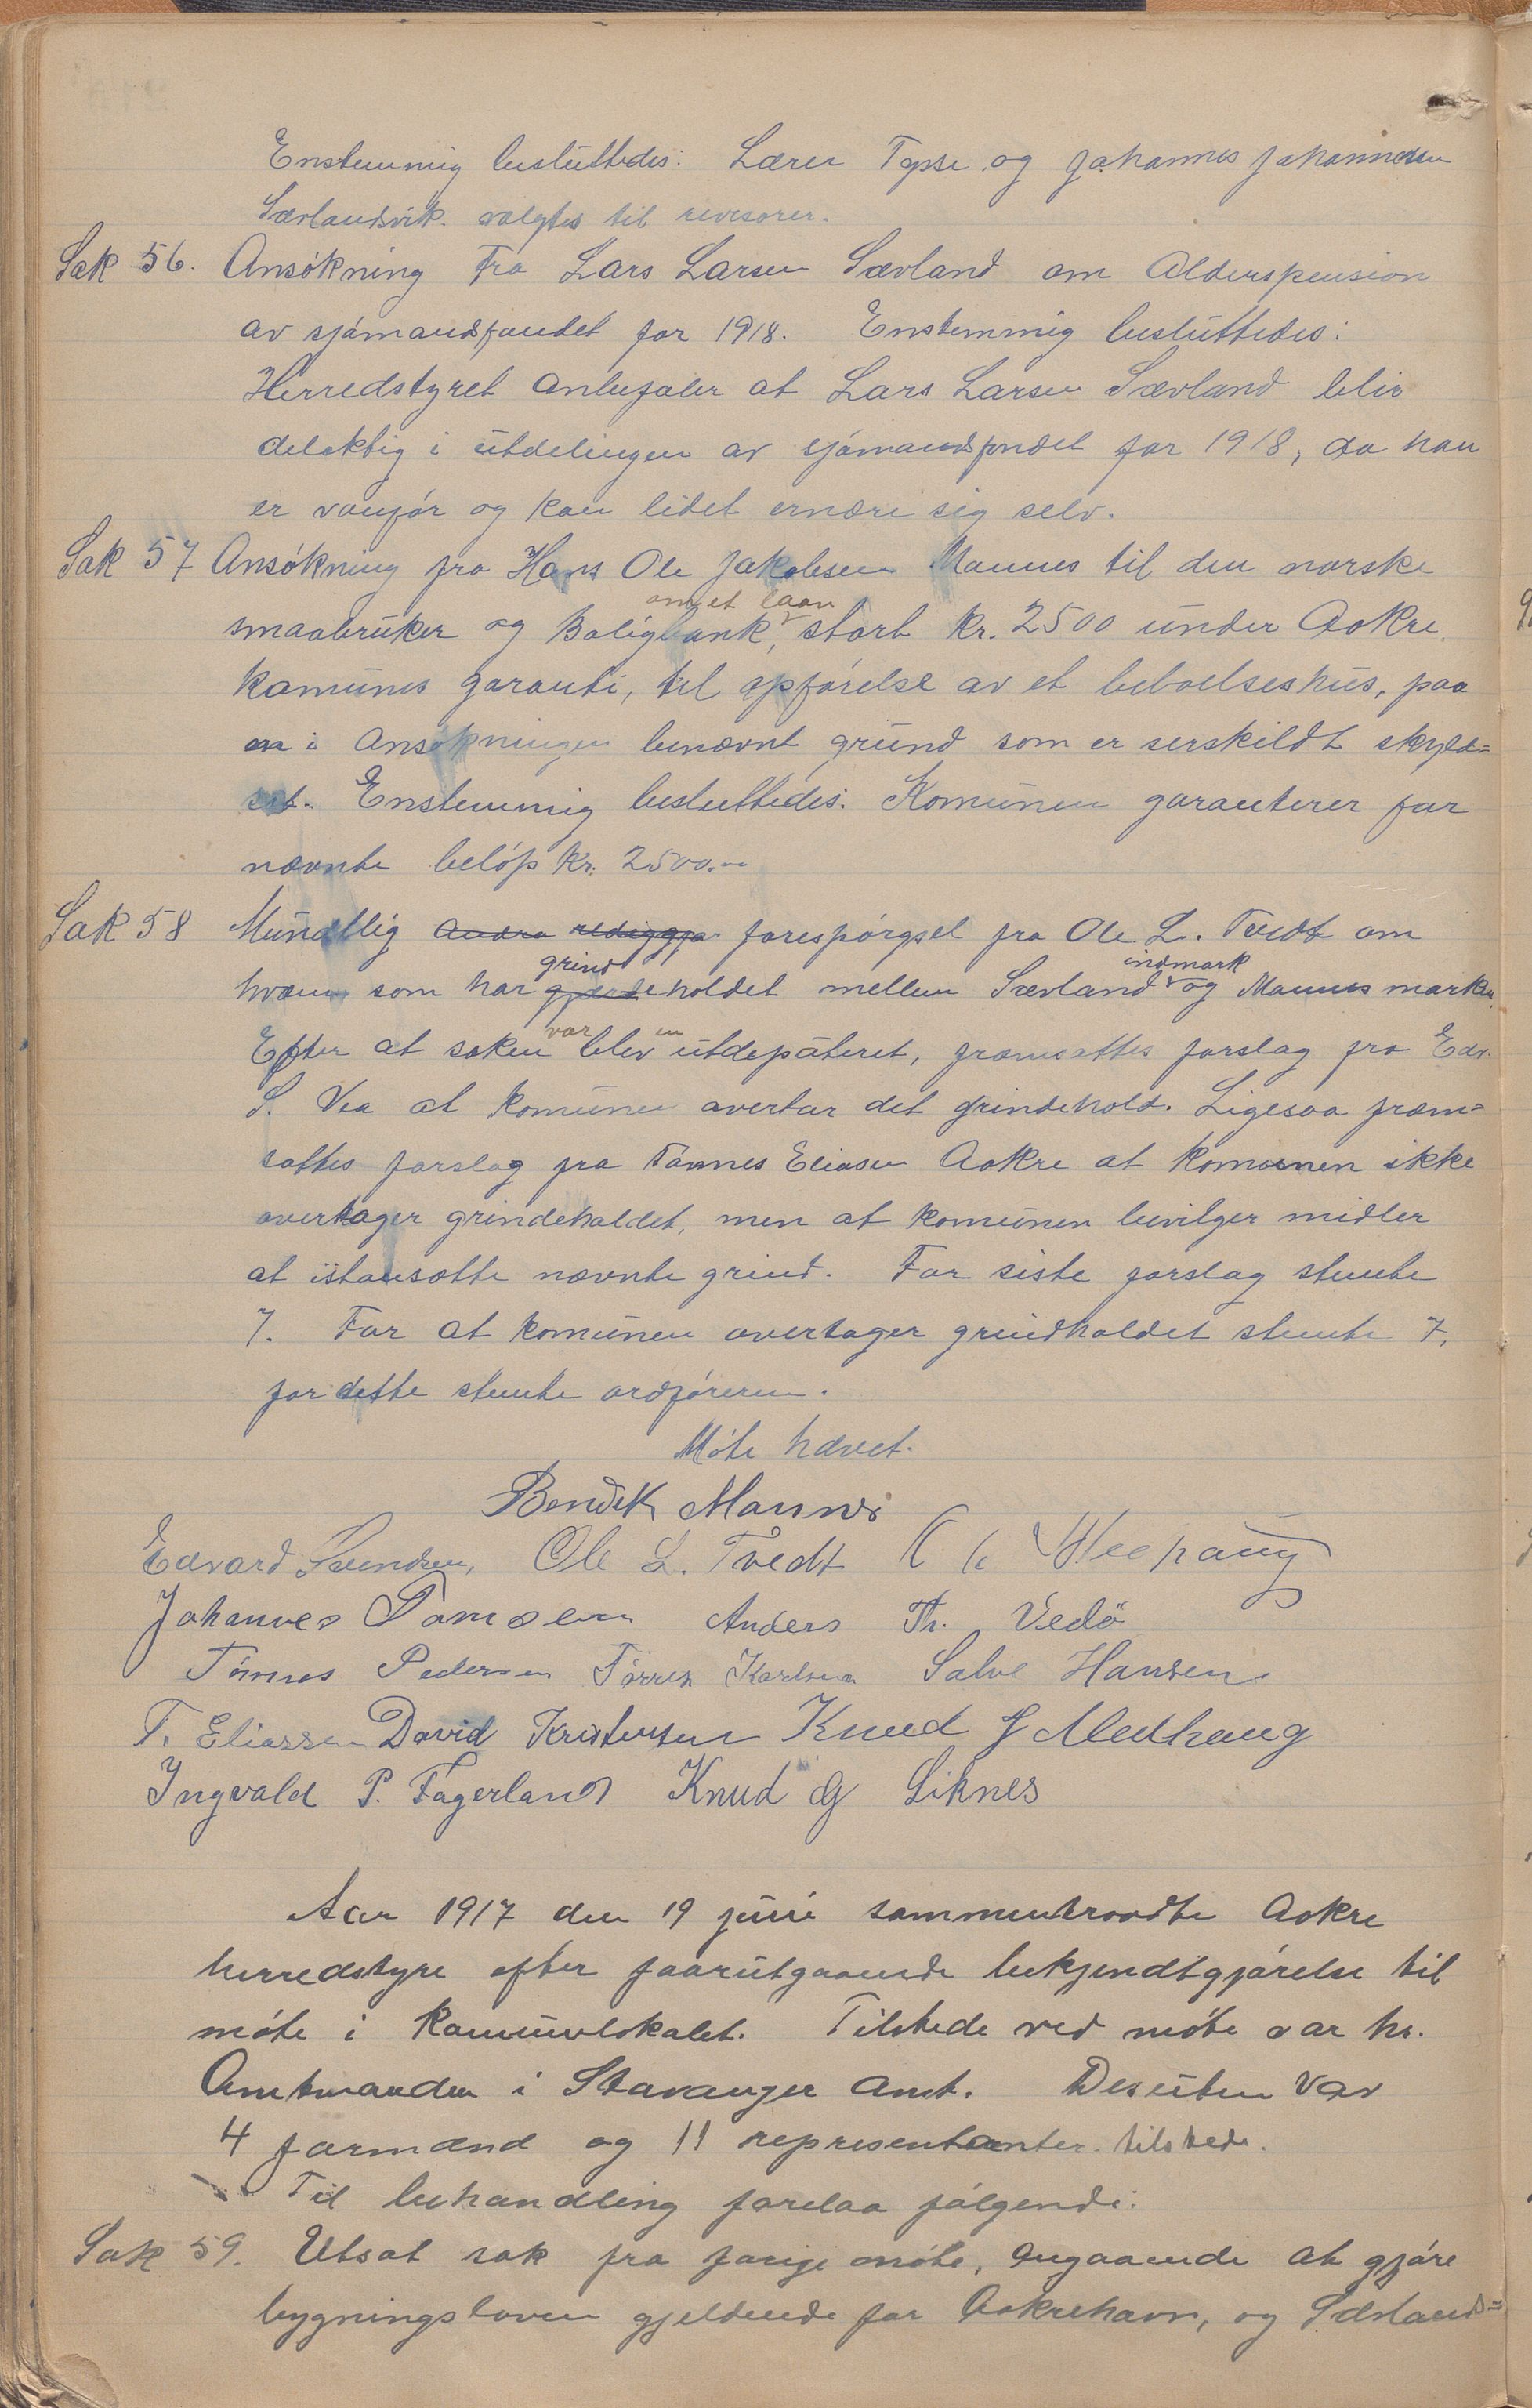 Enstemmig besluttedes: Lærer Tøpse og Johannes Johannesen
Sævlandsvik. valgtes til revisorer.
Sak 56. Ansökning Fra Lars Larsen Sævland om Alderspension
av sjömandsfondet for 1918. Enstemmig besluttedes:
Herredstyret Anbefaler at Lars Larsen Sævland blir
delaktig i utdelingen av sjömandsfondet for 1918, da han
er vanför og kan lidet ernære sig selv.
Sak 57 Ansökning fra Hans Ole Jakobsen Mannes til den norske
om et laan
smaabruker og Boligbank, stort kr. 2500 under Aakre
Komunes garanti, til opförelse av et beboelseshus, paa
en i Ansökningen benævnt grund som er serskildt skyld=
sat. Enstemmig besluttedes: Komunen garanterer for
nævnte belöp kr. 2500.00
Sak 58 Mundtlig forespörgsel fra Ole L. Tvedt om
grind indmark
hvem som har gjerdeholdet mellem Sævland og Mannes marken.
var en
Efter at saken blev utdepateret, fremsattes forslag fra Edv.
S. Vea at komunen overtar det grindehold. Ligesaa frem=
sattes forslag fra Tönnes Eliasen Aakre at komunen ikke
overtager grindeholdet, men at komunen bevilger midler
at istansætte nævnte grind. For siste forslag stemte
7. For at komunen overtager grindholdet stemte 7,
for dette stemte ordföreren.
Möte hævet.
Bendik Mannes
Edvard Svendsen, Ole L. Tvedt
Johannes Tomsen Anders Th. Vedö
Tönnes Pedersen Törres Karlsen Salve Hansen
T. Eliassen David Kristensen Knud J Medhaug
Ingvald P. Fagerland Knud G Liknes
Aar 1917 den 19 juni sammentraadte Aakre
herredstyre efter forutgaaende bekjendtgjörelse til
möte i Komunelokalet. Tilstede ved möte var hr.
Amtmanden i Stavanger Amt. Desuten var
4 formænd og 11 representanter tilstede.
Til behandling forelaa fölgende:
Sak 59. Utsat sak fra forige möte, angaaende at gjöre
bygningsloven gjeldende for Aakrehavn, og Sævlands=